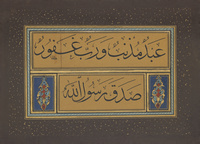 عبد مذنب ورب غفور
صدق رسول الله